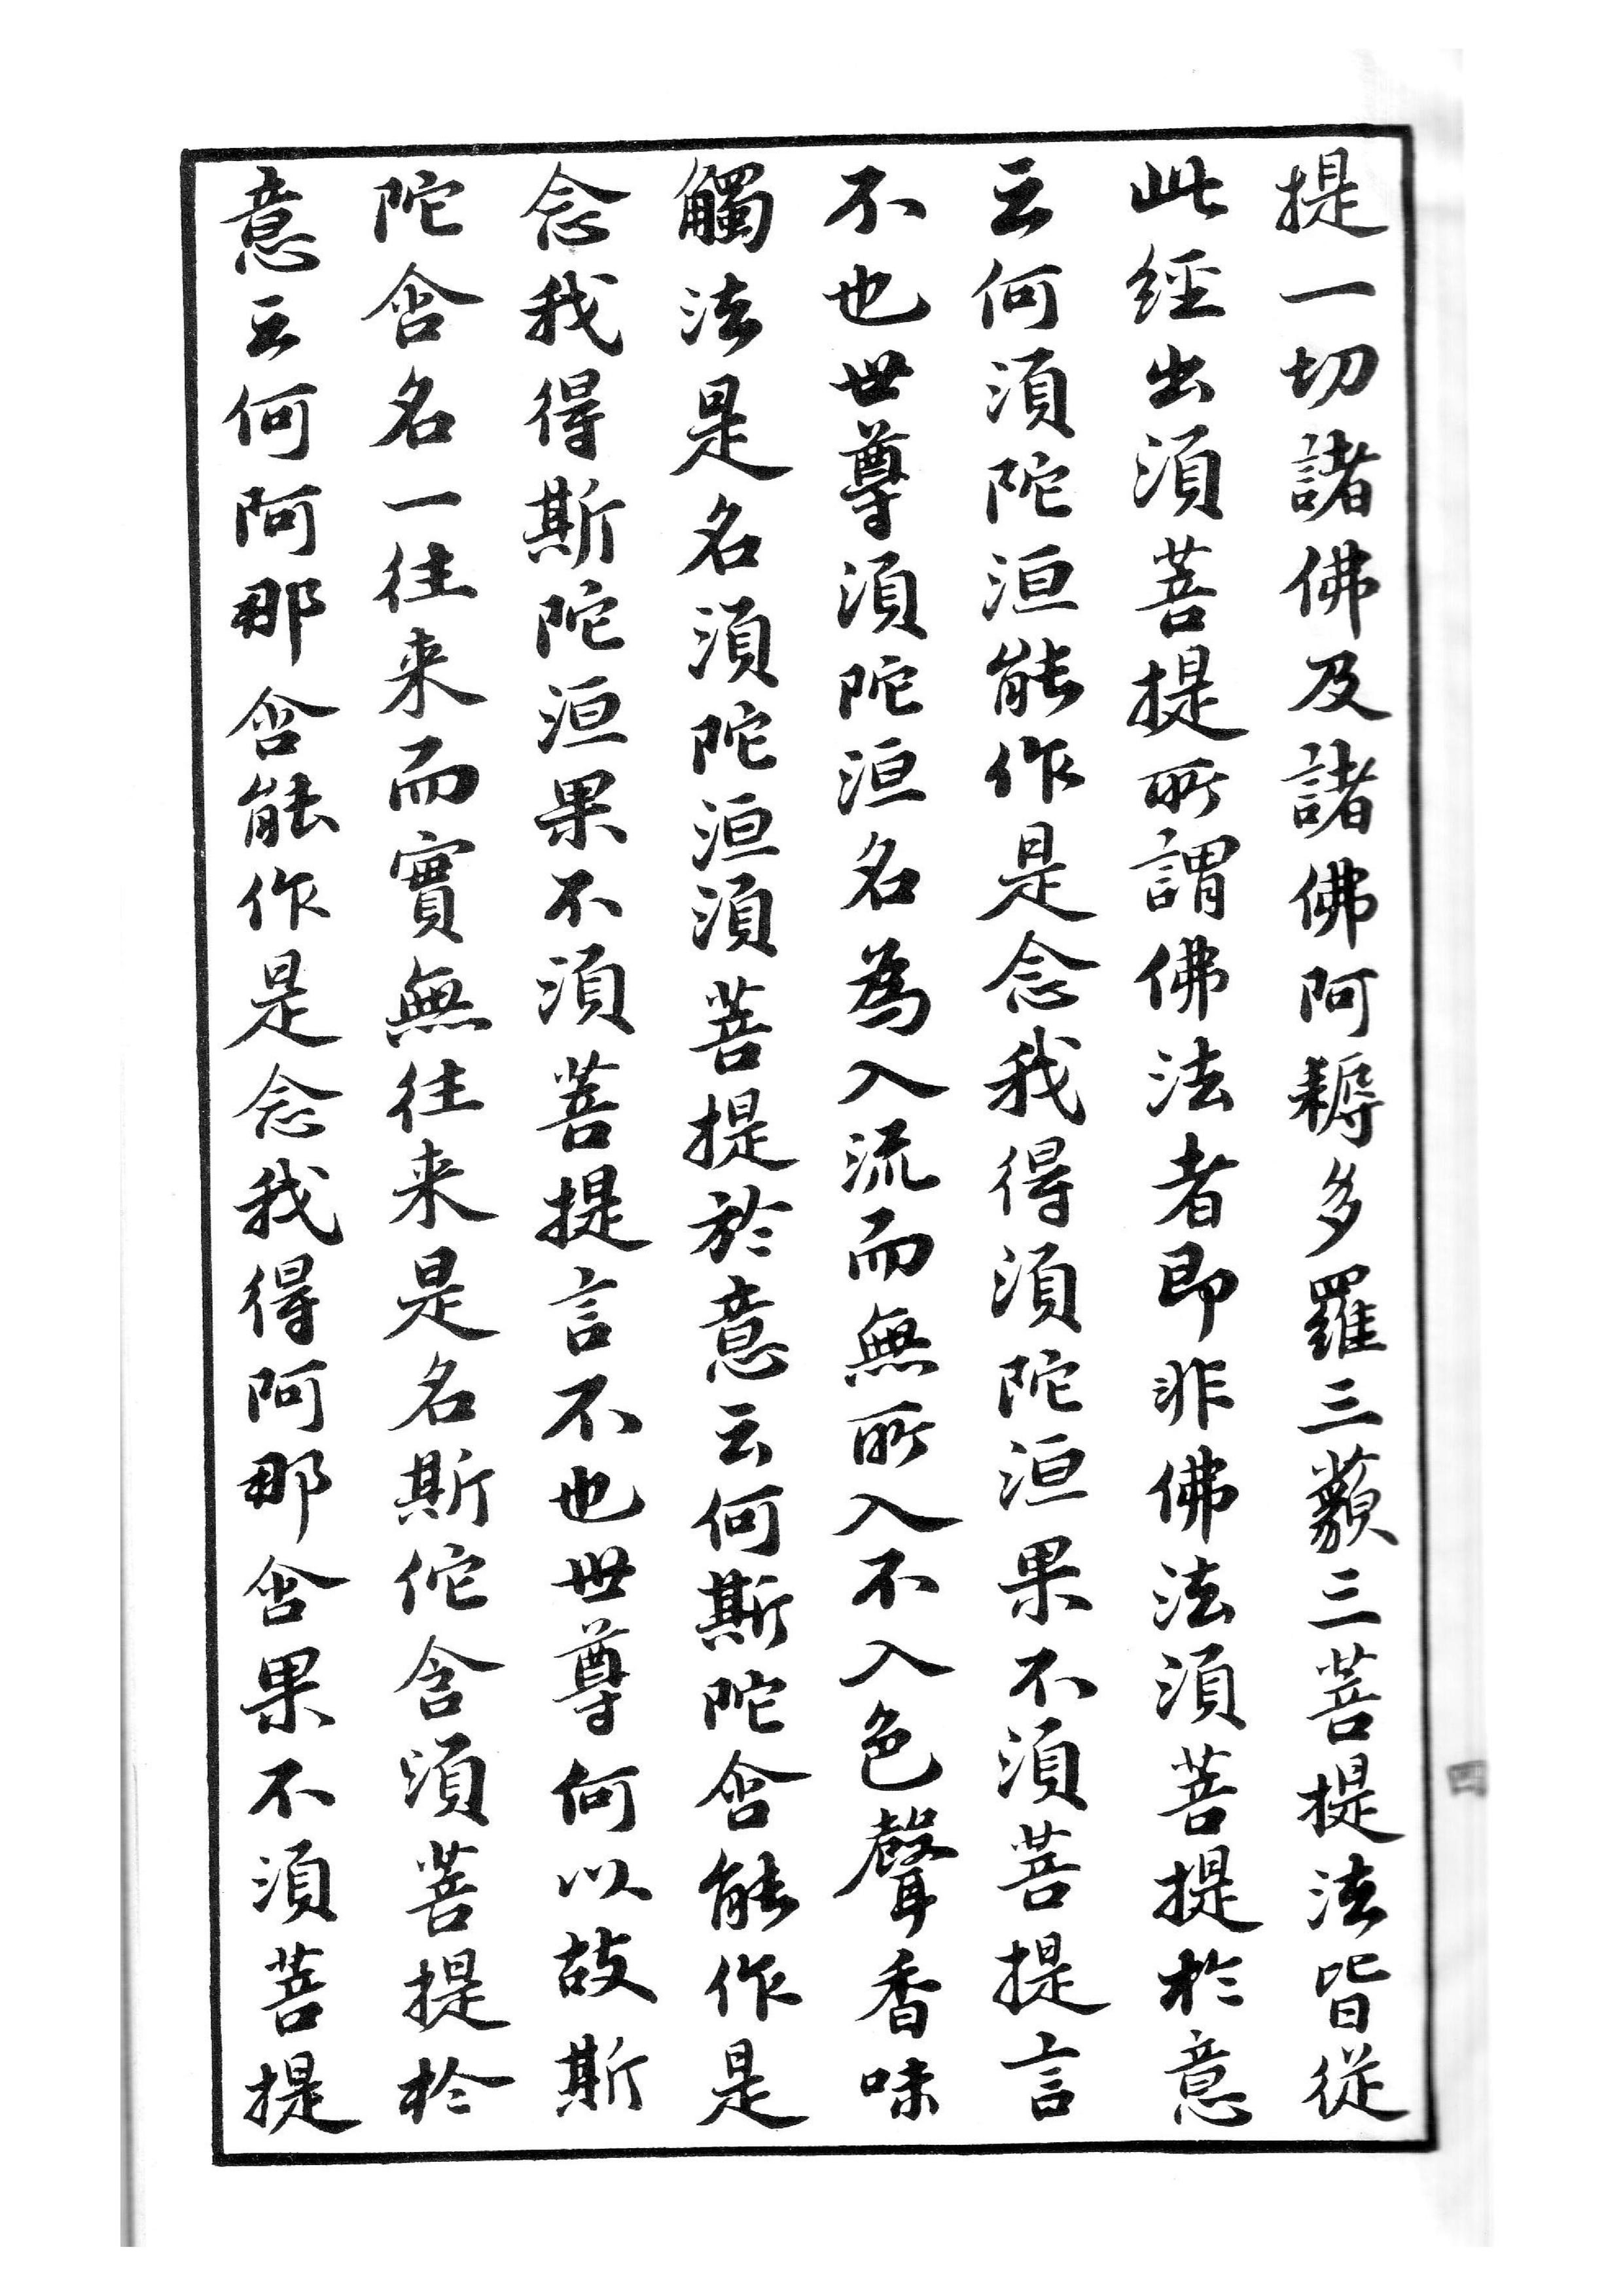 提一切諸佛及諸佛阿耨多羅三藐三菩提法皆從
此經出須菩提所謂佛法者即非佛法須菩提於意
云何須陀洹能作是念我得須陀洹果不須菩提言
不也世尊須陀洹名為入流而無所入不入色聲香味
觸法是名須陀洹須菩提於意云何斯陀含能作是
念我得斯陀洹果不須菩提言不也世尊何以故斯
陀含名一往来而實無往来是名斯佗含須菩提於
意云何阿那含能作是念我得阿那含果不須菩提
四